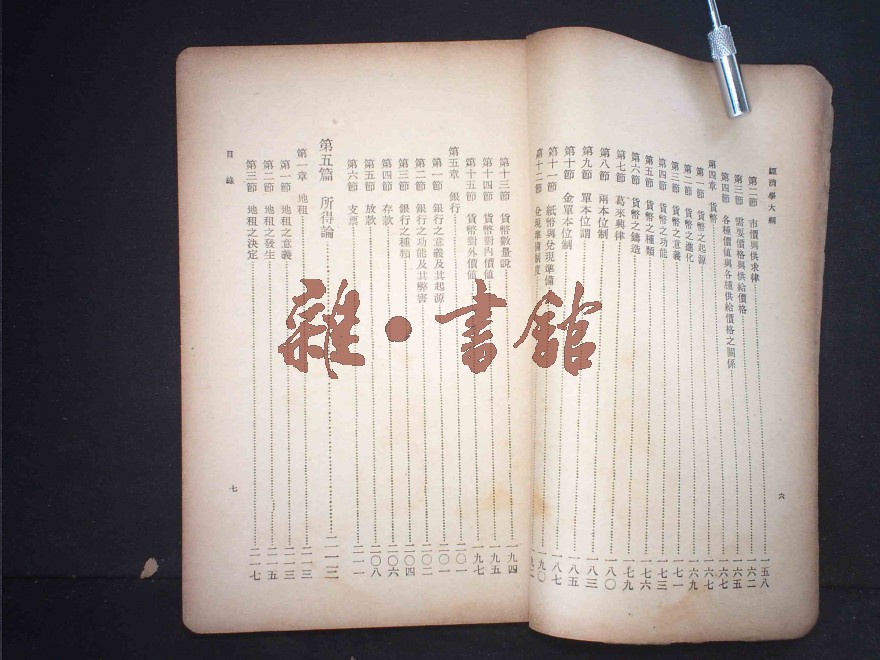 經濟學大綱
六
第二節 市價與供求律……一五八
第三節 需要價格與供給價格……一六二
第四節 各種價值與各種供給價格之關係……一六五
第四章 貨幣……一六七
第一節 貨幣之起源……一六七
第二節 貨幣之進化……一六九
第三節 貨幣之意義……一七一
第四節 貨幣之功能……一七三
第五節 貨幣之種類……一七六
第六節 貨幣之鑄造……一七九
第七節 葛來興律……一八〇
第八節 兩本位制……一八三
第九節 單本位謂……一八五
第十節 金單本位制……一八七
第十一節 紙幣與兌現準備……一九〇
第十二節 兌現準備制度……一九二
第十三節 貨幣數量說……一九四
第十四節 貨幣對內價值……一九五
第十五節 貨幣對外價值……一九七
第五章 銀行……二〇一
第一節 銀行之意義及其起源……二〇一
第二節 銀行之功能及其弊害……二〇二
第三節 銀行之種類……二〇四
第四節 存款……二〇六
第五節 放款……二〇八
第六節 支票……二一一
第五篇 所得論……二一三
第一章 地租……二一三
第一節 地租之意義……二一三
第二節 地租之發生……二一五
第三節 地租之決定……二一七
目錄
七
雜·書館